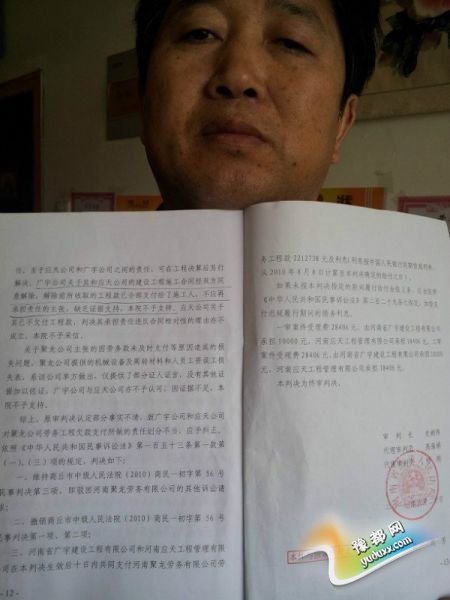 任，至于应天公司和广宇公司之间的责任，可在工程决算后另行
解决。广宇公司关于其和应天公司的建设工程施工合同经双方同
意解除，解除前所收取的工程款已全部支付给了施工人，不应再
承担责任的主张，缺乏证据支持，本院不予支持。应天公司关于
其已不欠付工程款，判决其承担责任违反合同相对性的理由亦不
成立，本院不予采信。
关于聚龙公司主张的因劳务款未及时支付等原因造成的损
失问题。聚龙公司提供的机械设备及周转材料和人员工资误工损
失表，系该公司单方做出，仅提供了部分证人证言，没有其他证
据加以佐证，广宇公司与应天公司亦不予认可，因证据不足，本
院不予支持。
综上，原审判决认定部分事实不清，致广宇公司和应天公司
对聚龙公司劳务工程欠款支付所做的责任划分不当，应予纠正。
依照《中华人民共和国民事诉讼法》第一百五十三条第一款第
（一）、（三）项的规定，判决如下：
一、维持商丘市中级人民法院（2010）商民一初字第 56 号
民事判决第三项，即驳回河南聚龙劳务有限公司的其他诉讼请
求；
二、撤销商丘市中级人民法院（2010）商民一初字第 56 号
民事判决第一项、第二项；
三、河南省广宇建设工程有限公司和河南应天工程管理有限
公司在本判决生效后十日内共同支付河南聚龙劳务有限公司劳
- 12 -
务工程款 2212738 元及利息（利息按中国人民银行同期贷款利率，
从 2010 年 4 月 8 日计算至本判决确定的给付之日）。
如果未按本判决指定的期间履行给付金钱义务，应当按照
《中华人民共和国民事诉讼法》第二百二十九条之规定，加倍支
付迟延履行期间的债务利息。
一审案件受理费 28406 元，由河南省广宇建设工程有限公司
承担 10000 元，河南应天工程管理有限公司承担 18406 元。二审
案件受理费 28406 元，由河南省广宇建设工程有限公司承担 10000
元，河南应天工程管理有限公司承担 18406 元。
本判决为终审判决。
审 判 长
代理审判员
代理审判员
豫都网
yuduxx.com